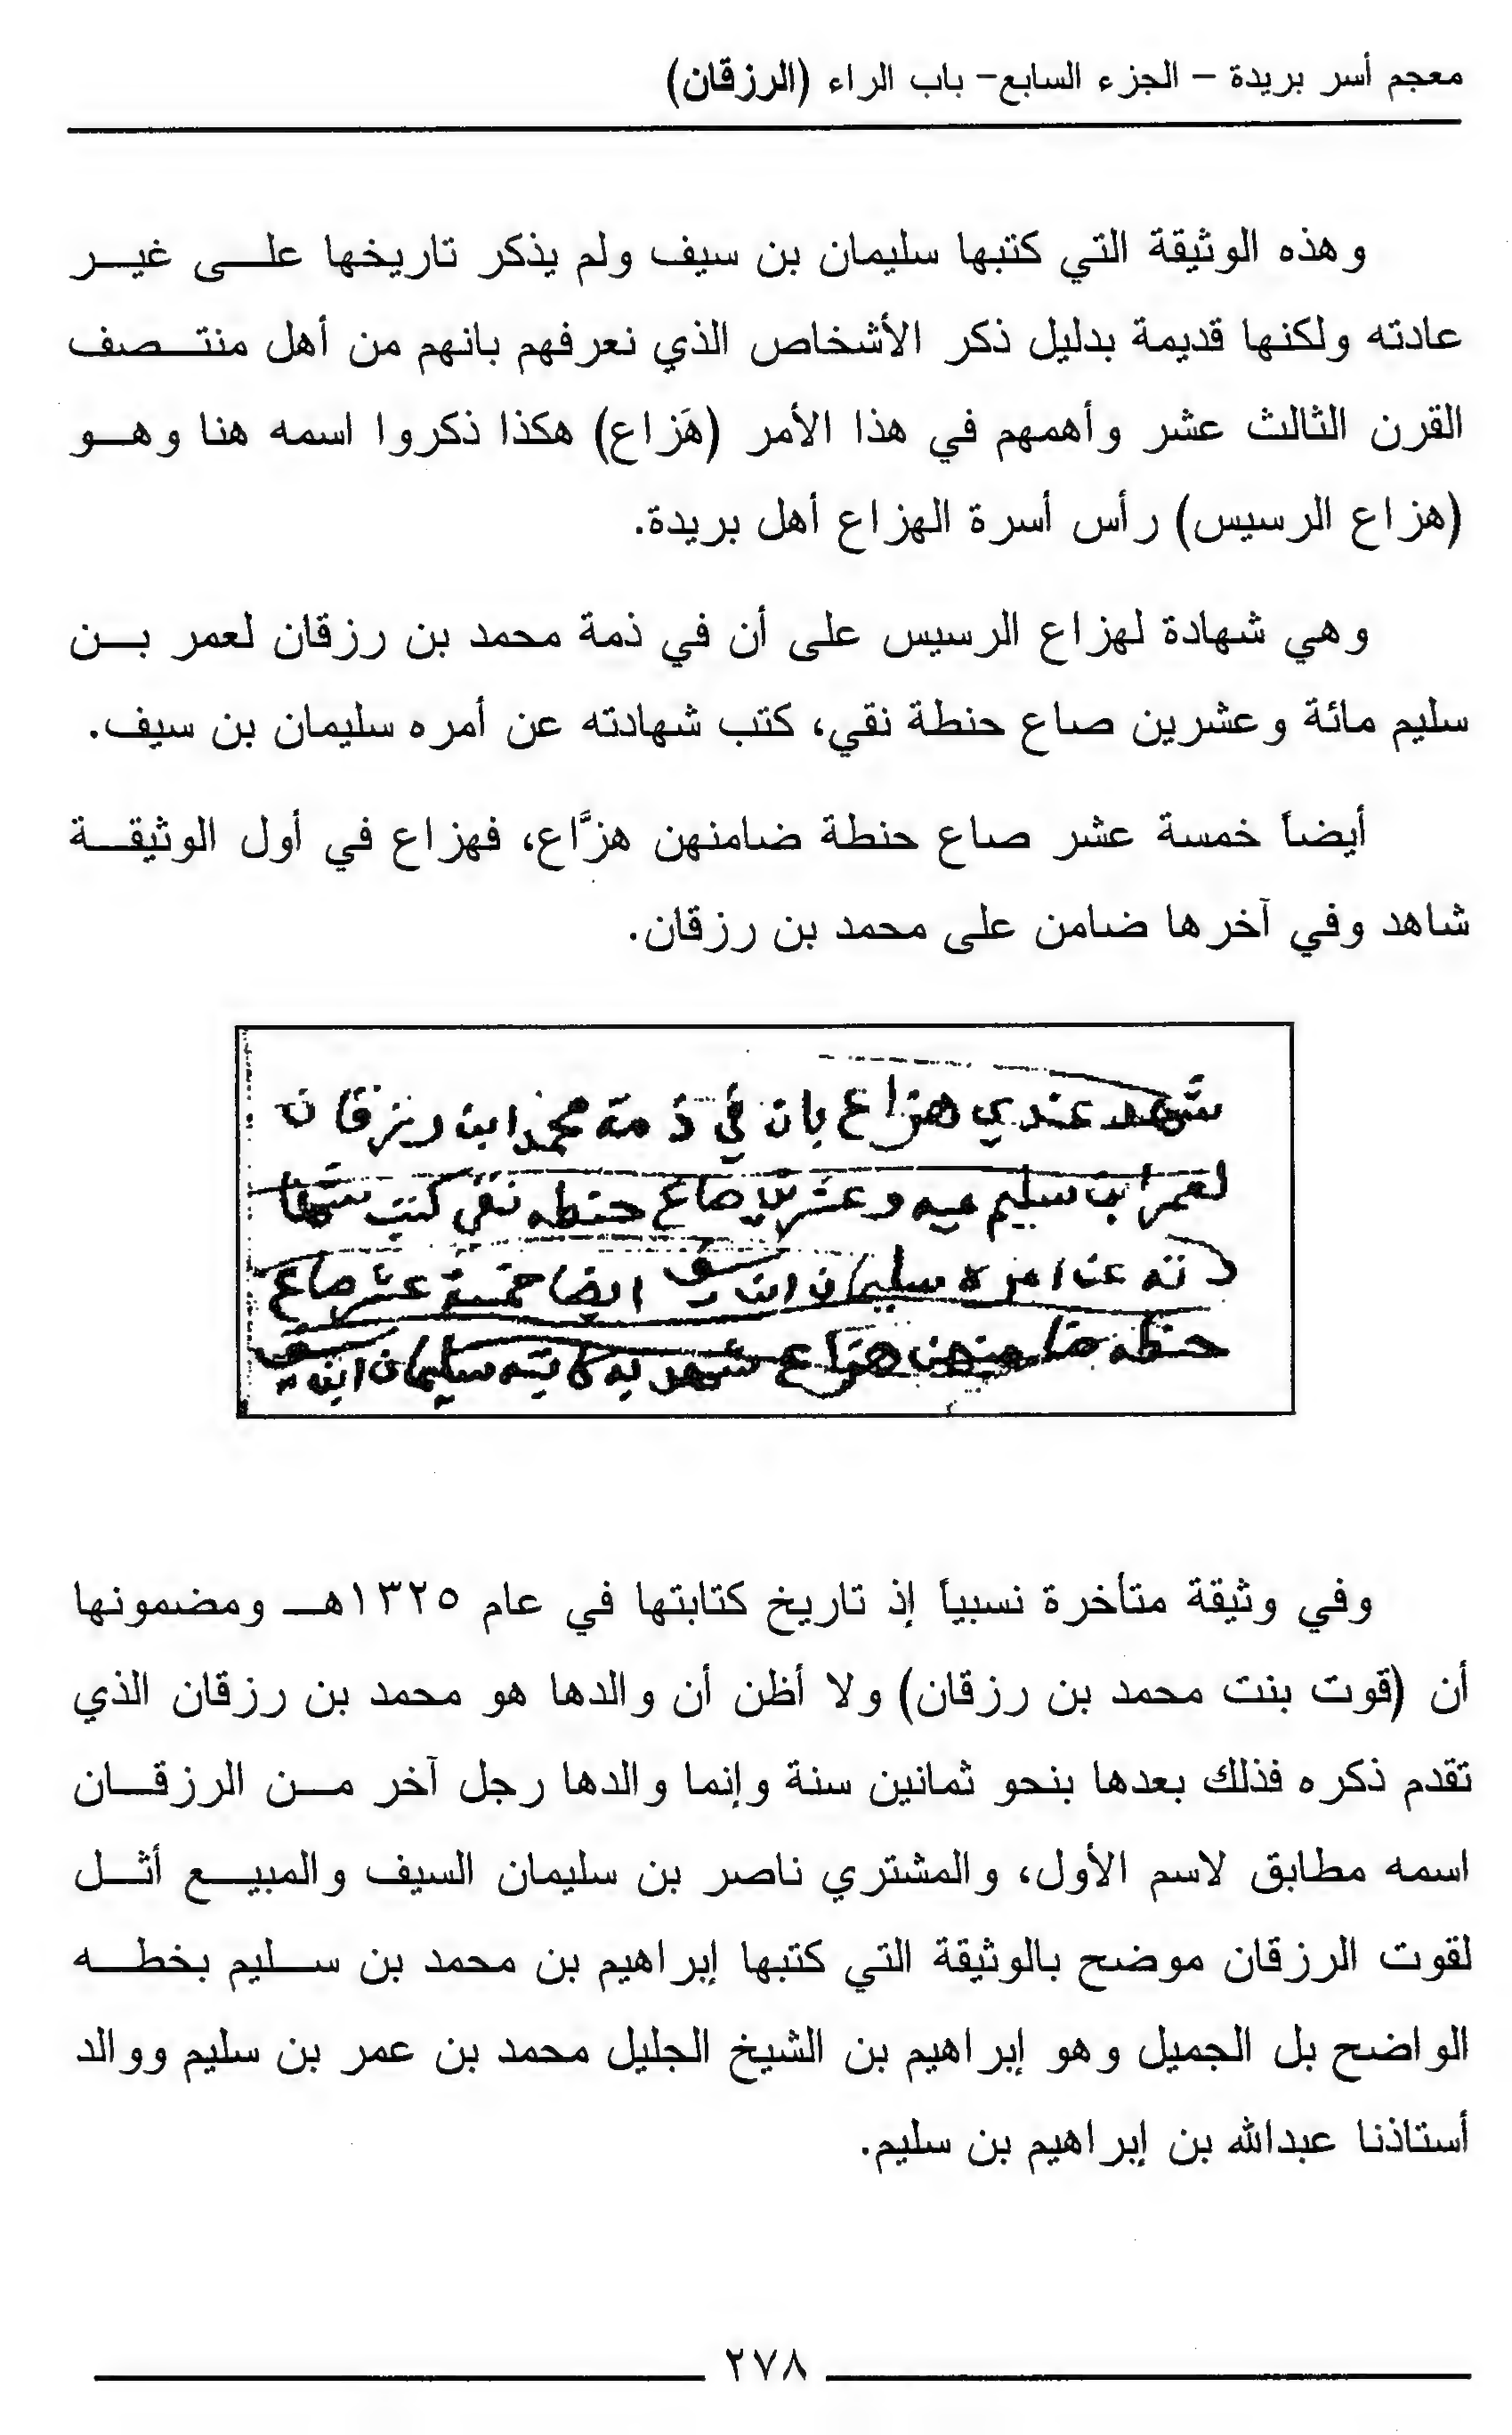 معجم أسر بريدة – الجزء السابع– باب الراء (الرزقان)
وهذه الوثيقة التي كتبها سليمان بن سيف ولم يذكر تاريخها على غير
عادته ولكنها قديمة بدليل ذكر الأشخاص الذي نعرفهم بانهم من أهل منتصف
القرن الثالث عشر وأهمهم في هذا الأمر (هَزاع) هكذا ذكروا اسمه هنا وهو
(هزاع الرسيس) رأس أسرة الهزاع أهل بريدة.
وهي شهادة لهزاع الرسيس على أن في ذمة محمد بن رزقان لعمر بن
سليم مائة وعشرين صاع حنطة نقي، كتب شهادته عن أمره سليمان بن سيف.
أيضاً خمسة عشر صاع حنطة ضامنهن هزَّاع، فهزاع في أول الوثيقة
شاهد وفي آخرها ضامن على محمد بن رزقان.
شهد عندي هزاع بان في ذمة محمد ابن رزقان
لعمر ابن سليم ميه وعشرين صاع حنطه نقي كتب شها
دته عن امره سليمان ابن سيف ايضا خمسة عشر صاع
حنطه ضامنهن هزاع شهد به كاتبه سليمان ابن سيف
وفي وثيقة متأخرة نسبياً إذ تاريخ كتابتها في عام ١٣٢٥هـ ومضمونها
أن (قوت بنت محمد بن رزقان) ولا أظن أن والدها هو محمد بن رزقان الذي
تقدم ذكره فذلك بعدها بنحو ثمانين سنة وإنما والدها رجل آخر من الرزقان
اسمه مطابق لاسم الأول، والمشتري ناصر بن سليمان السيف والمبيع أثل
لقوت الرزقان موضح بالوثيقة التي كتبها إبراهيم بن محمد بن سليم بخطه
الواضح بل الجميل وهو إبراهيم بن الشيخ الجليل محمد بن عمر بن سليم ووالد
أستاذنا عبدالله بن إبراهيم بن سليم.
٢٧٨